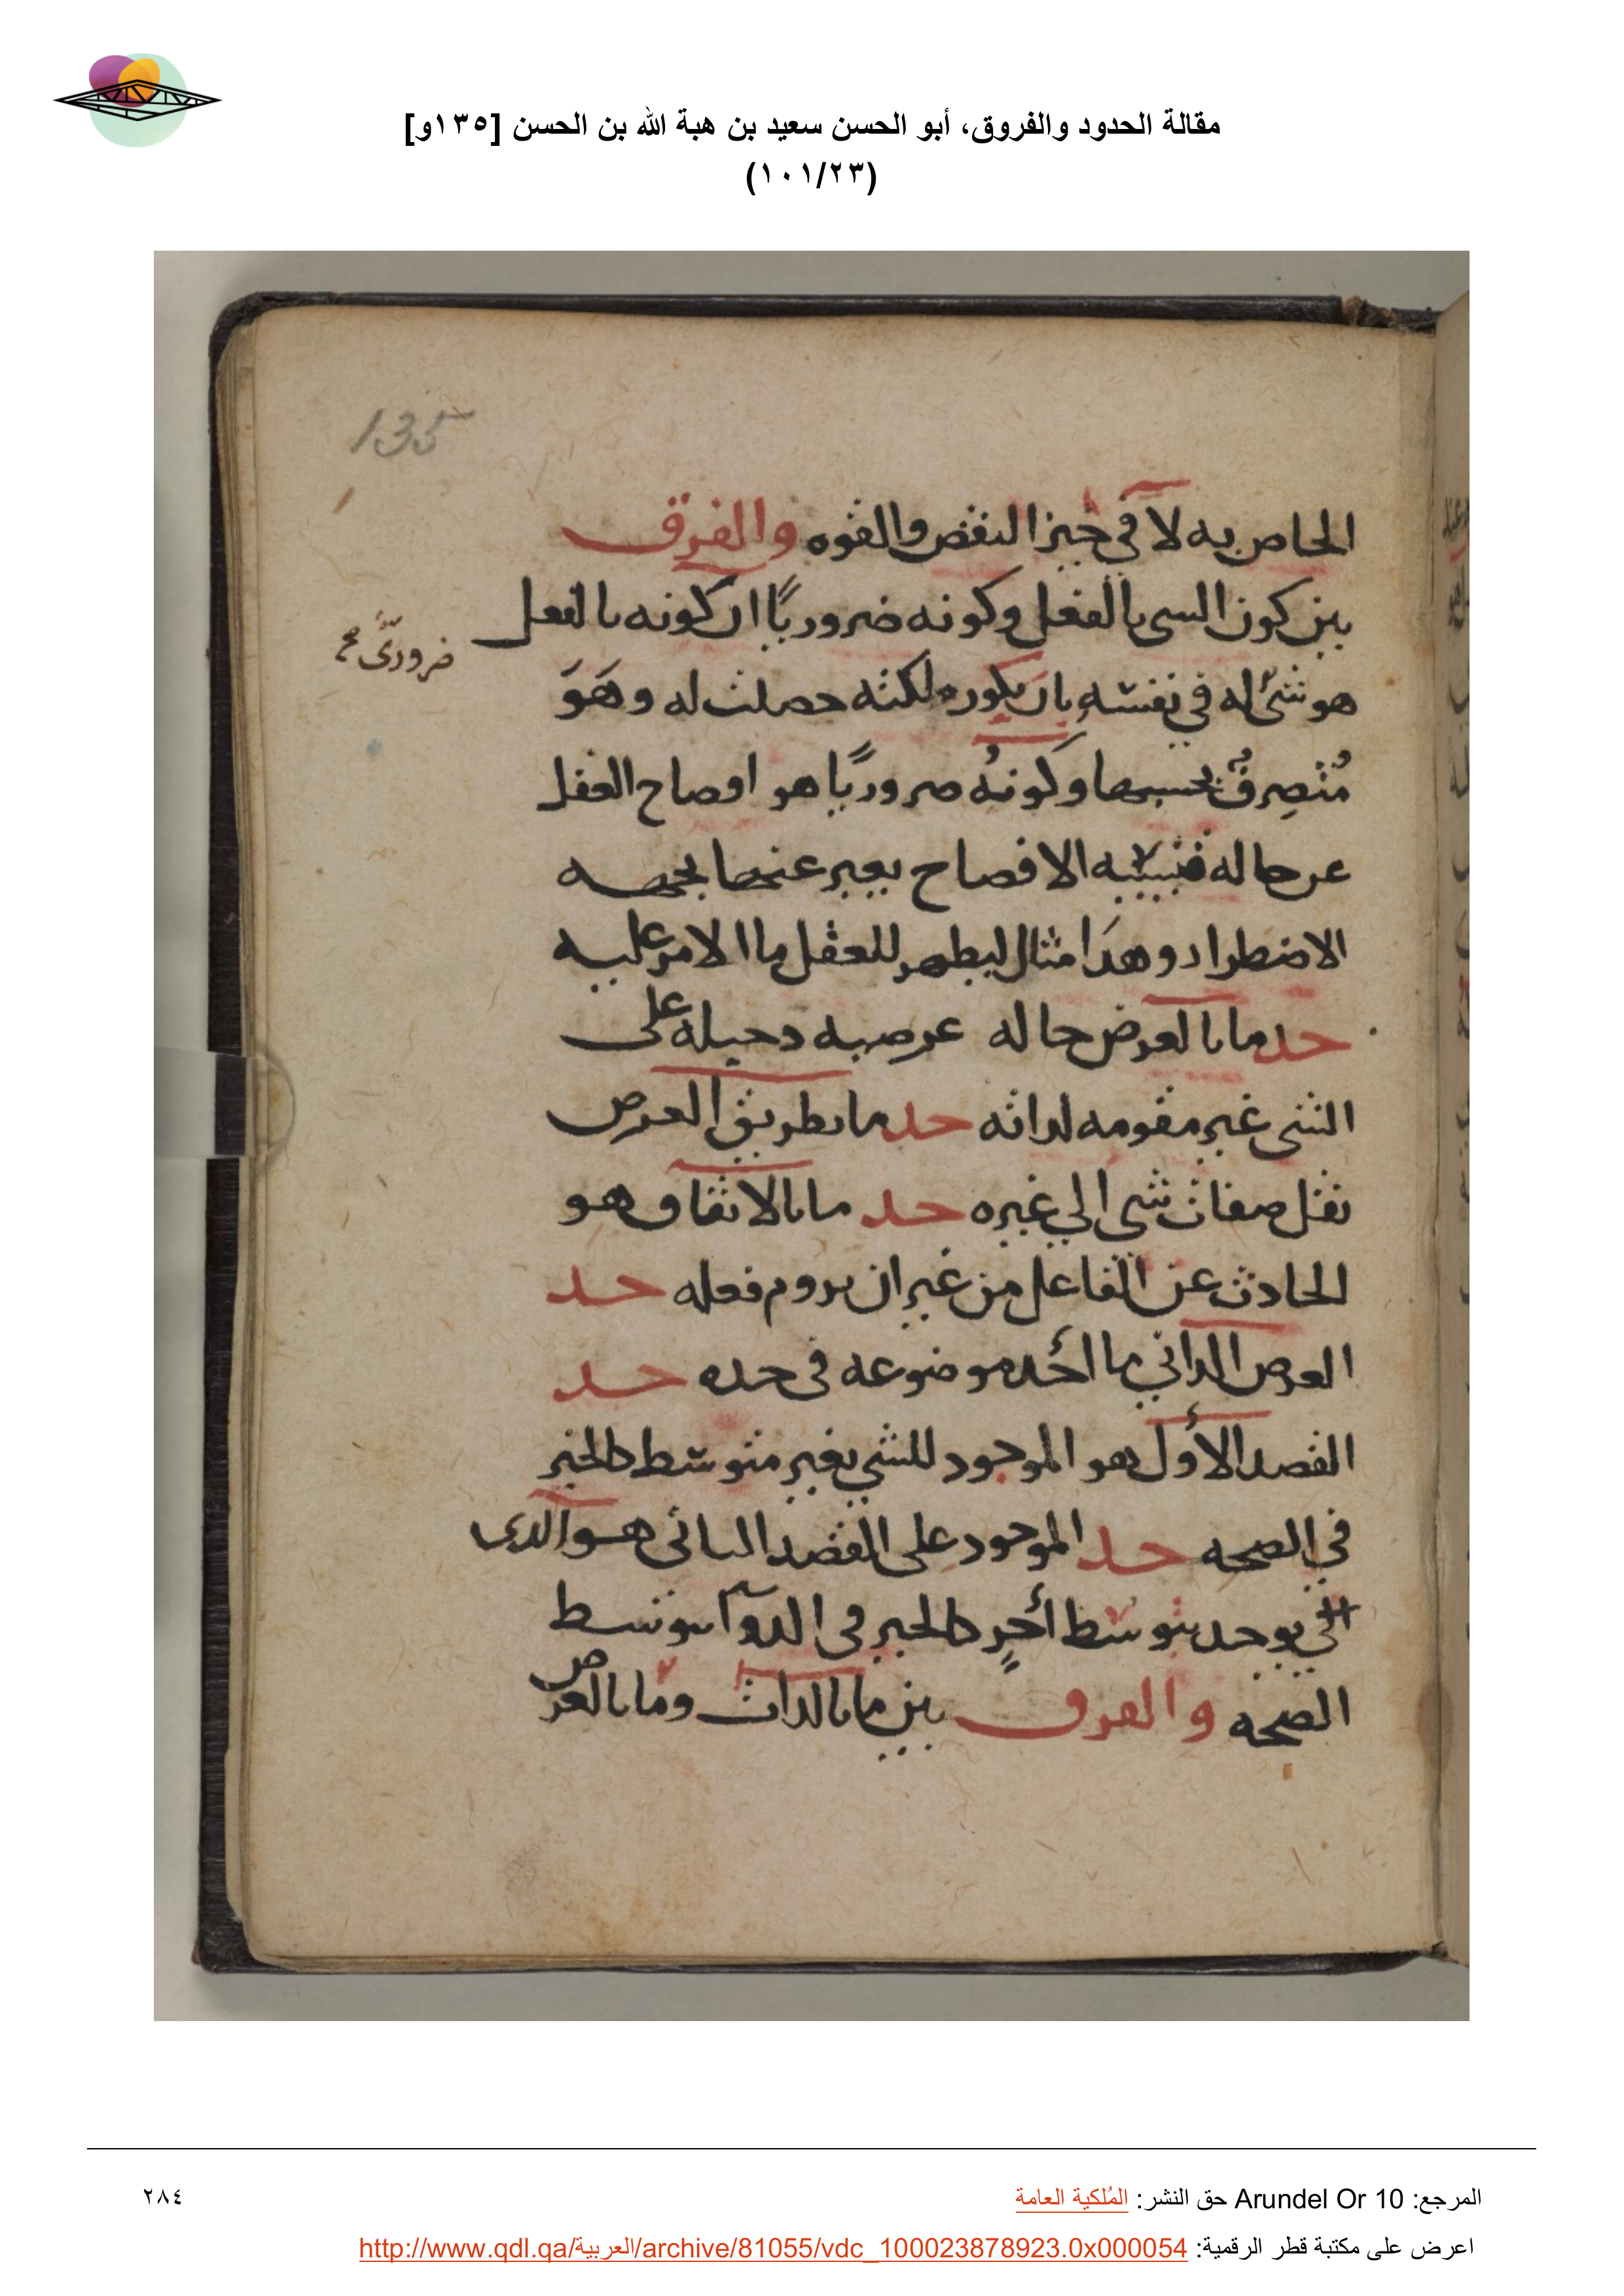 مقالة الحدود والفروق، أبو الحسن سعيد بن هبة الله بن الحسن [١٣٥و]
(١٠١/٢٣)
135
الخاص به لا في حيز النقص والقوه والفرق
بين كون الشى بالفعل وكونه ضروريًا ان كونه بالفعل
ضرورىّ صح
هو شئ له في نفسه بان يكون ملكته حصلت له وهو
مُتصرفٌ بحسبها وكونهُ ضروريًا هو افصاح العقل
عن حاله فنسبه الافصاح يعبر عنها بجهه
الاضطرار وهذا مثال ليظهر للعقل ما الامر عليه
حد ما بالعرض حاله عرضيه دخيله على
الشى غير مقومه لذاته حد ما بطريق العرض
نقل صفات شى الي غيره حد ما بالاتفاق هو
الحادث عن الفاعل من غير ان يروم فعله حد
العرض الذاتي ما اخذ موضوعه في حده حد
القصد الأول هو الموجود للشي بغير متوسط كالخير
في الصحه حد الموجود على القصد الثانى هو الذى
يوجد بتوسط أخرٍ كالخير في الدوآ بتوسط
الصحه والفرق بين ما بالذات وما بالعرض
المرجع: Arundel Or 10 حق النشر: المُلكية العامة
٢٨٤
اعرض على مكتبة قطر الرقمية: http://www.qdl.qa/العربية/archive/81055/vdc_100023878923.0x000054